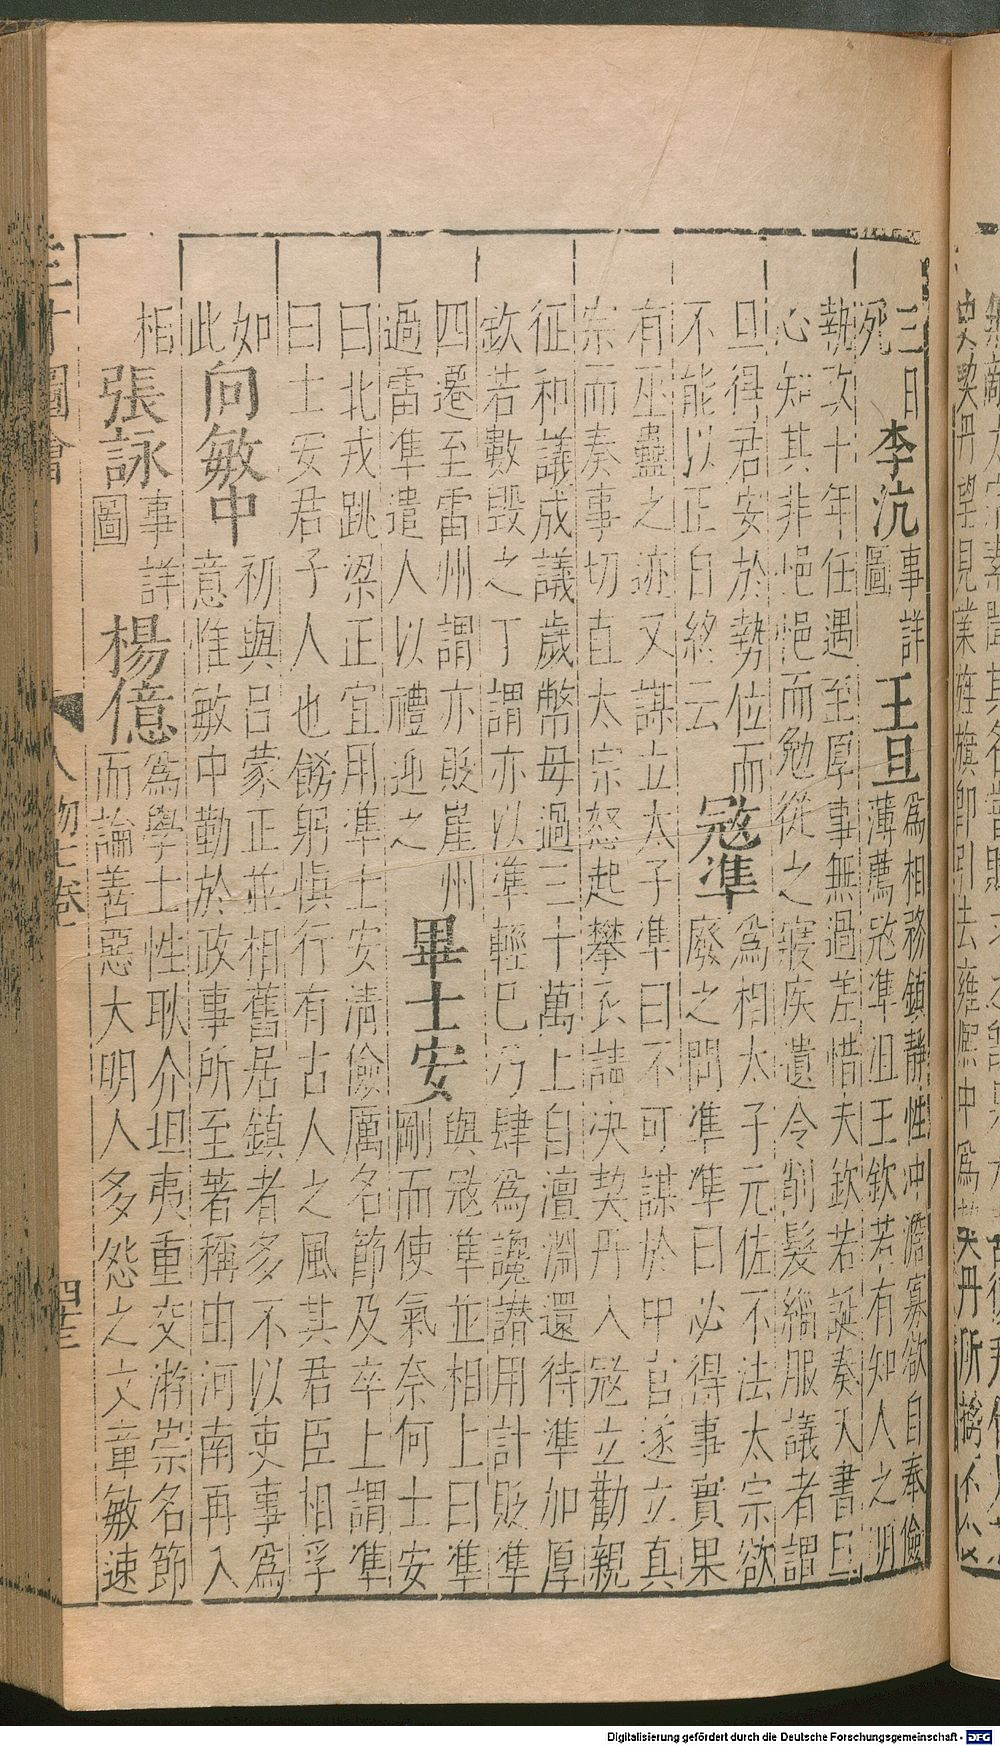 三日
死
李沆
事詳
圖
王旦
爲相務鎮靜性冲澹寡欲自奉儉
薄薦寇準沮王欽若有知人之明
執政十年任遇至厚事無過差惜夫欽若誕奏天書旦
心知其非悒悒而勉從之寢疾遺令削髮緇服議者謂
旦得君安於勢位而
不能以正自終云
寇準
爲相太子元佐不法太宗欲
廢之問準準曰必得事實果
有巫蠱之迹又謀立太子準曰不可謀於中官遂立真
宗而奏事切直太宗怒起攀衣請決契丹入寇立勸親
征和議成議歲幣毋過三十萬上自澶淵還待準加厚
欽若數毀之丁謂亦以準輕巳乃肆爲讒譖用計貶準
四遷至雷州謂亦貶崖州
過雷準遣人以禮迎之
畢士安
與寇準並相上曰準
剛而使氣奈何士安
曰北戎跳梁正宜用準士安淸儉厲名節及卒上謂準
曰士安君子人也餝躬愼行有古人之風其君臣相孚
如
此
向敏中
初與呂蒙正並相舊居鎮者多不以吏事爲
意惟敏中勤於政事所至著稱由河南再入
相
張詠
事詳
圖
楊億
爲學士性耿介坦夷重交游崇名節
而論善惡大明人多怨之文章敏速
三才圖會
人物七卷
四十三
Digitalisierung gefördert durch die Deutsche Forschungsgemeinschaft - DFG